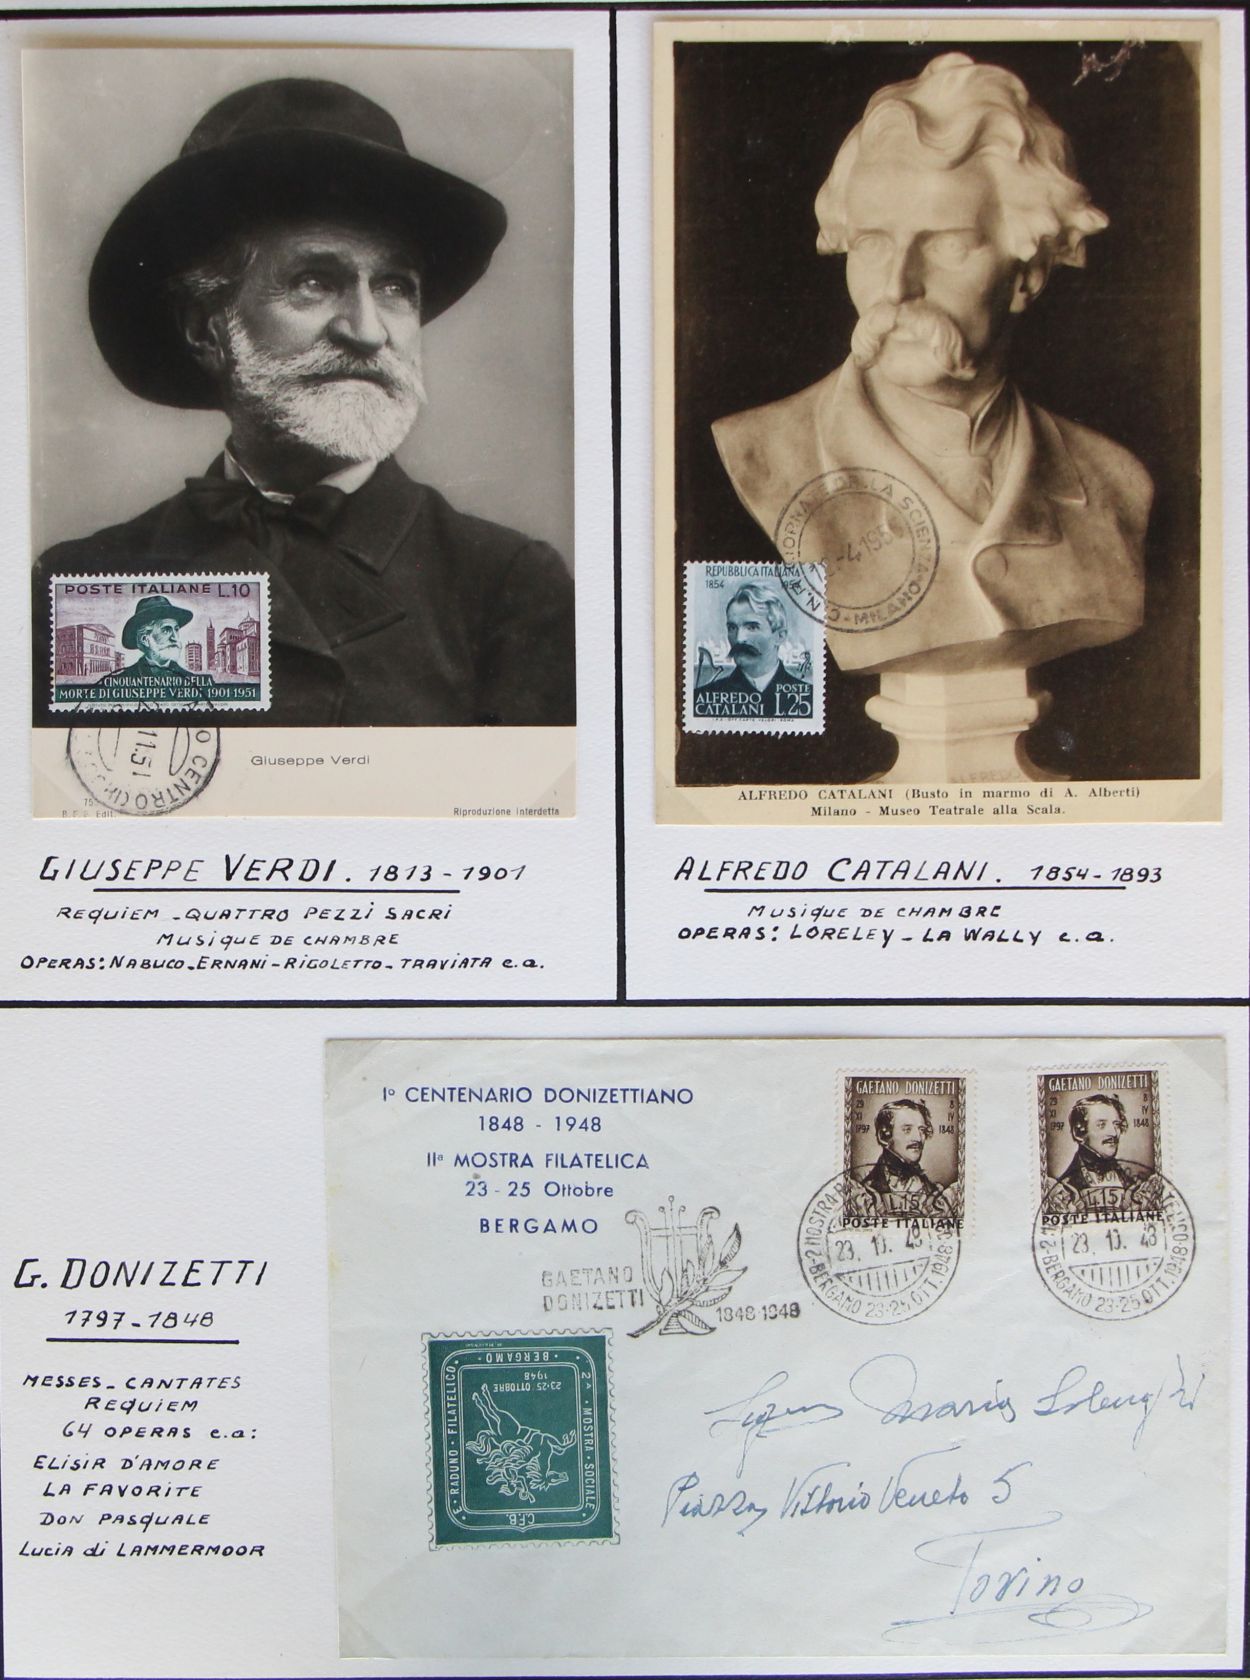 POSTE ITALIANE L.10
CINQUANTENARIO DELLA
MORTE DI GIUSEPPE VERDI 1901-1951
CENTRO
11.51
Giuseppe Verdi
B.F.F. Edit.
Riproduzione interdetta
GIUSEPPE VERDI. 1813-1901
REQUIEM - QUATTRO PEZZI SACRI
MUSIQUE DE CHAMBRE
OPERAS: NABUCO - ERNANI - RIGOLETTO - TRAVIATA e.a.
GIORNATE DELLA SCIENZA
MILANO
REPUBBLICA ITALIANA
1854
ALFREDO
CATALANI
POSTE
L.25
ALFREDO CATALANI (Busto in marmo di A. Alberti)
Milano - Museo Teatrale alla Scala.
ALFREDO CATALANI. 1854-1893
MUSIQUE DE CHAMBRE
OPERAS: LORELEY - LA WALLY e.a.
G. DONIZETTI
1797-1848
MESSES - CANTATES
REQUIEM
64 OPERAS e.a:
ELISIR D'AMORE
LA FAVORITE
DON PASQUALE
LUCIA di LAMMERMOOR
I° CENTENARIO DONIZETTIANO
1848 - 1948
IIª MOSTRA FILATELICA
23 - 25 Ottobre
BERGAMO
GAETANO
DONIZETTI
1848·1948
GAETANO DONIZETTI
29 XI 1797
8 IV 1848
L.15
POSTE ITALIANE
23. 10. 48
BERGAMO 23-25 OTT. 1948
GAETANO DONIZETTI
29 XI 1797
8 IV 1848
L.15
POSTE ITALIANE
23. 10. 48
BERGAMO 23-25 OTT. 1948
2ª MOSTRA SOCIALE
E RADUNO FILATELICO
BERGAMO
23-25 OTTOBRE
1948
C.F.B.
Maria
Piazza Vittorio Veneto 5
Torino